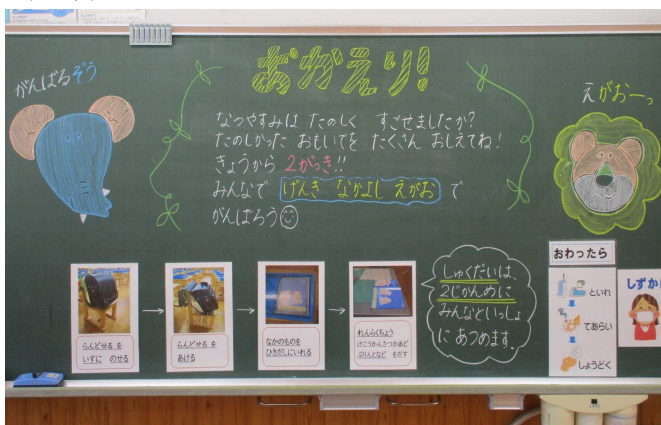 おかえり!
がんばるぞう
えがおーっ
なつやすみは たのしく すごせましたか?
たのしかった おもいでを たくさん おしえてね!
きょうから 2がっき!!
みんなで げんき なかよし えがお で
がんばろう
らんどせる を
いすに のせる
らんどせる を
あける
なかのものを
ひきだしにいれる
れんらくちょう
けこうかんさつかあど
ぷりんとなど をだす
しゅくだいは、
2じかんめに
みんなといっしょ
にあつめます。
おわったら
といれ
てあらい
しょうどく
しずか